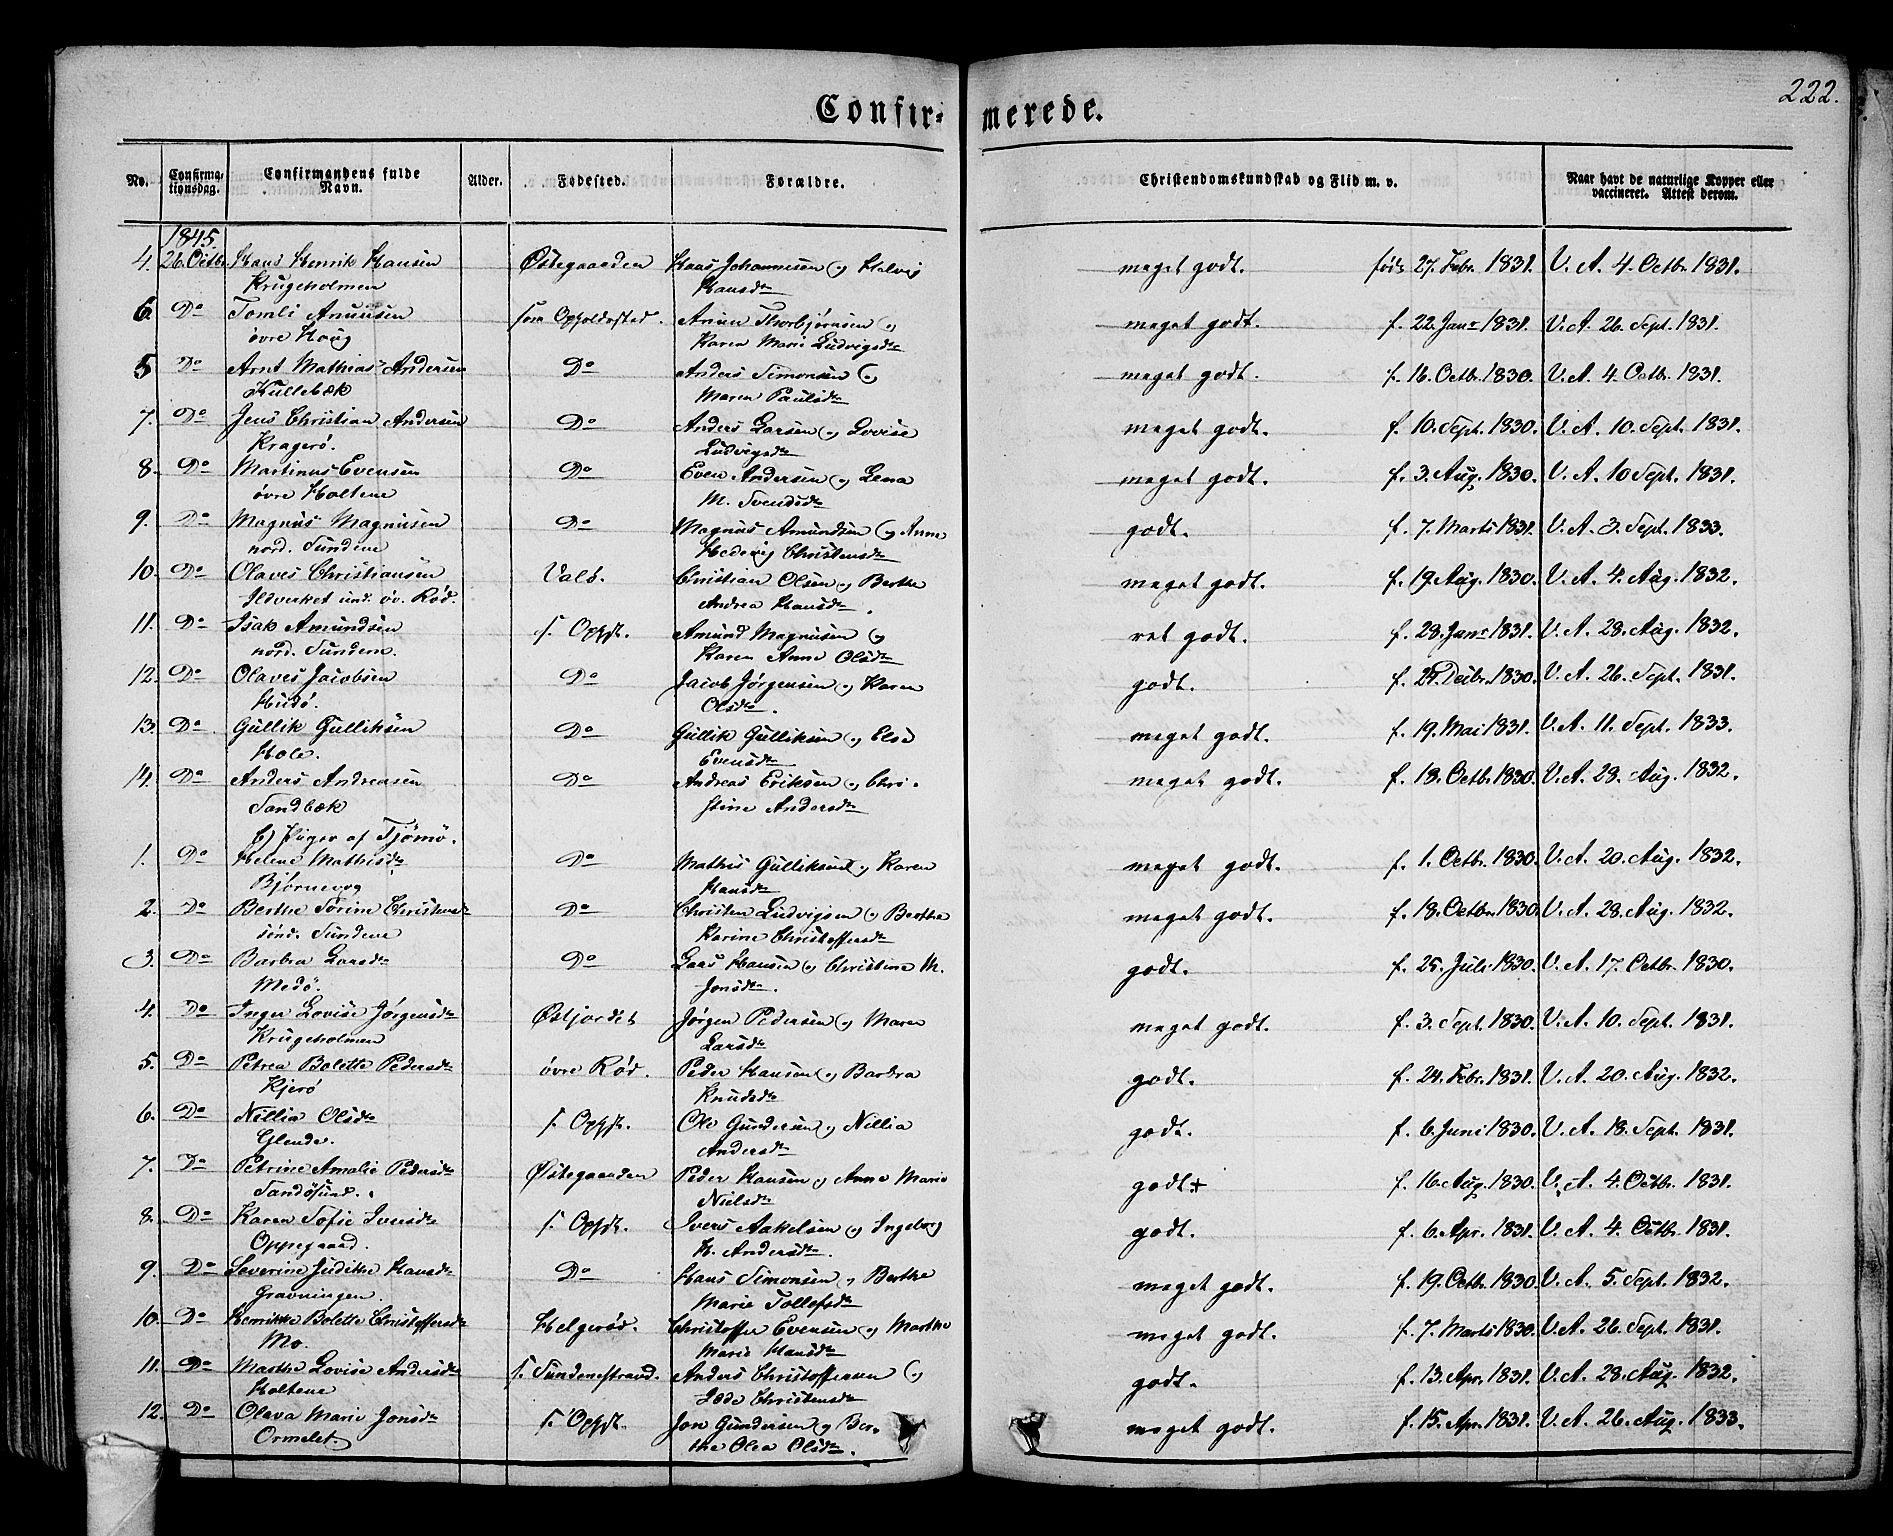 222.
Confir- merede.
No. Confirmationsdag. Confirmandens fulde Navn. Alder. Fødested. Forældre. Christendomskundskab og Flid m. v. Naar havt de naturlige Kopper eller vaccineret. Attest derom.
1845.
4. 26. Octbr. Hans Henrik Hansen Østegaarden Haas Johannesen og Helvig meget godt. føds 27. Febr. 1831. V. A. 4. Octbr. 1831.
Krugeholmen Hansdtr
6. Do Tomli Anunsen som Opholdssted. Anun Thorbjørnsen og meget godt. f. 22. Janr 1831. V. A. 26. Sept. 1831.
øvre Houg Karen Marie Ludvigsdtr
5 Do Arnt Mathias Andersen Do Anders Simonsen og meget godt. f. 16. Octb. 1830. V. A. 4. Octb. 1831.
Kullebæk Maren Paulsdtr
7. Do Jens Christian Andersen Do Anders Larsen og Lovise meget godt. f. 10. Sept. 1830. V. A. 10. Sept. 1831.
Kragerø. Ludvigsdtr
8. Do Martinus Evensen Do Even Andersen og Lena meget godt. f. 3. Aug. 1830. V. A. 10 Sept. 1831.
øvre Holtene M. Svendsdtr
9. Do Magnus Magnusen Do Magnus Amundsen og Anne godt. f. 7. Marts 1831. V. A. 3. Sept. 1833.
nord. Sundene Hedevig Christensdtr
10. Do Olaves Christiansen Valø. Christian Olsen og Berthe meget godt. f. 19. Aug. 1830. V. A. 4. Aug. 1832.
Ildverket und. øv. Rød. Andrea Hansdtr.
11. Do Isak Amundsen s. Opht. Amund Magnusen og ret godt. f. 28. Janr 1831. V. A. 28. Aug. 1832.
nord. Sundene. Karen Anne Olsdtr
12. Do Olaves Jacobsen Do Jacob Jørgensen og Karen godt. f. Decbr. 1830. V. A. 26. Sept. 1831.
Hudø. Olsdtr.
13. Do Gullik Gulliksen Do Gullik Gulliksen og Else meget godt. f. 19. Mai 1831. V. A. 11. Sept. 1833.
Hole. Evensdtr
14. Do Anders Andreasen Do Andreas Eriksen og Chri- meget godt. f. 18. Octb. 1830. V. A. 28. Aug. 1832.
Sandbæk stine Andersdtr
b) Piger af Tjømø.
1. Do Helene Mathisdtr Do Mathis Gulliksen og Karen meget godt. f. 1. Octbr. 1830. V. A. 20. Aug. 1832.
Bjørnevog Hansdtr
2. Do Berthe Sorine Christensdtr Do Christen Ludvigsen og Berthe meget godt. f. 18. Octbr. 1830. V. A. 28. Aug. 1832.
sønd. Sundene Karine Christoffersdtr
3. Do Barbra Laasdtr Do Laas Hansen og Christine M. godt. f. 25. Juli 1830. V. A. 17. Octbr. 1830.
Medø. Jonsdtr.
4. Do Inger Lovise Jørgensdtr Østjordet Jørgen Pedersen og Maren meget godt. f. 3. Sept. 1830. V. A. 10. Sept. 1831.
Krugeholmen Larsdtr
5. Do Petrea Bolette Pedersdtr øvre Rød. Peder Hansen og Barbra godt. f. 24. Febr. 1831. V. A. 20. Aug. 1832.
Kjerø Knudsdtr
6. Do Nillia Olsdtr s. Opht. Ole Gundersen og Nillia godt. f. 6. Juni 1830. V. A. 18. Sept. 1831.
Glende. Andersdtr
7. Do Petrine Amalie Pedersdtr Østegaarden Peder Hansen og Anne Marie godt+ f. 16. Aug. 1830. V. A. 4. Octbr. 1831.
Sandøsund. Nielsdtr
8. Do Karen Sofie Iversdtr s. Opht. Ivers Aakelsen og Ingeborg godt. f. 6. Apr. 1831. V. A. 4. Octbr. 1831.
Oppegaard. H. Andersdtr.
9. Do Severine Judithe Hansdtr Do Hans Simonsen og Berthe meget godt. f. 19. Octb. 1830. V. A. 5. Sept. 1832.
Gravningen. Marie Tollefsdtr
10. Do Henrikke Bolette Christoffersdtr Helgerød. Christoffer Evensen og Marthe meget godt. f. 7. Marts 1830. V. A. 26. Sept. 1831.
Mo. Marie Hansdtr
11. Do Marthe Lovise Andersdtr s. Sundenestrand. Anders Christoffersen og godt. f. 13. Apr. 1831. V. A. 28. Aug. 1832.
Holtene Christensdtr
12. Do Olava Marie Jonsdtr s. Opht. Jon Gundersen og Ber- meget godt. f. 15. Apr. 1831. V. A. 26. Aug. 1833.
Ormelet. the Olea Olsdtr.